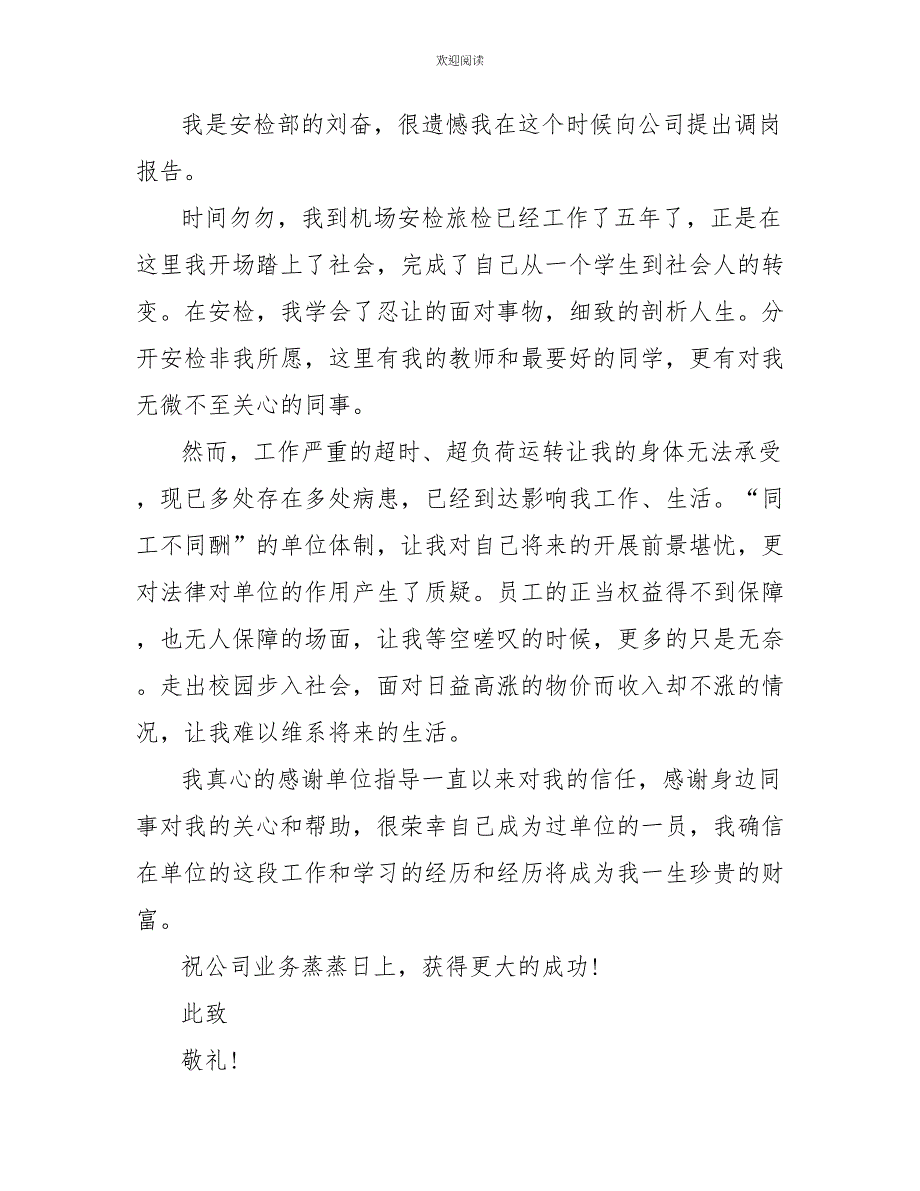 欢迎阅读
我是安检部的刘奋，很遗憾我在这个时候向公司提出调岗
报告。
时间勿勿，我到机场安检旅检已经工作了五年了，正是在
这里我开场踏上了社会，完成了自己从一个学生到社会人的转
变。在安检，我学会了忍让的面对事物，细致的剖析人生。分
开安检非我所愿，这里有我的教师和最要好的同学，更有对我
无微不至关心的同事。
然而，工作严重的超时、超负荷运转让我的身体无法承受
，现已多处存在多处病患，已经到达影响我工作、生活。“同
工不同酬”的单位体制，让我对自己将来的开展前景堪忧，更
对法律对单位的作用产生了质疑。员工的正当权益得不到保障
，也无人保障的场面，让我等空嗟叹的时候，更多的只是无奈
。走出校园步入社会，面对日益高涨的物价而收入却不涨的情
况，让我难以维系将来的生活。
我真心的感谢单位指导一直以来对我的信任，感谢身边同
事对我的关心和帮助，很荣幸自己成为过单位的一员，我确信
在单位的这段工作和学习的经历和经历将成为我一生珍贵的财
富。
祝公司业务蒸蒸日上，获得更大的成功!
此致
敬礼!